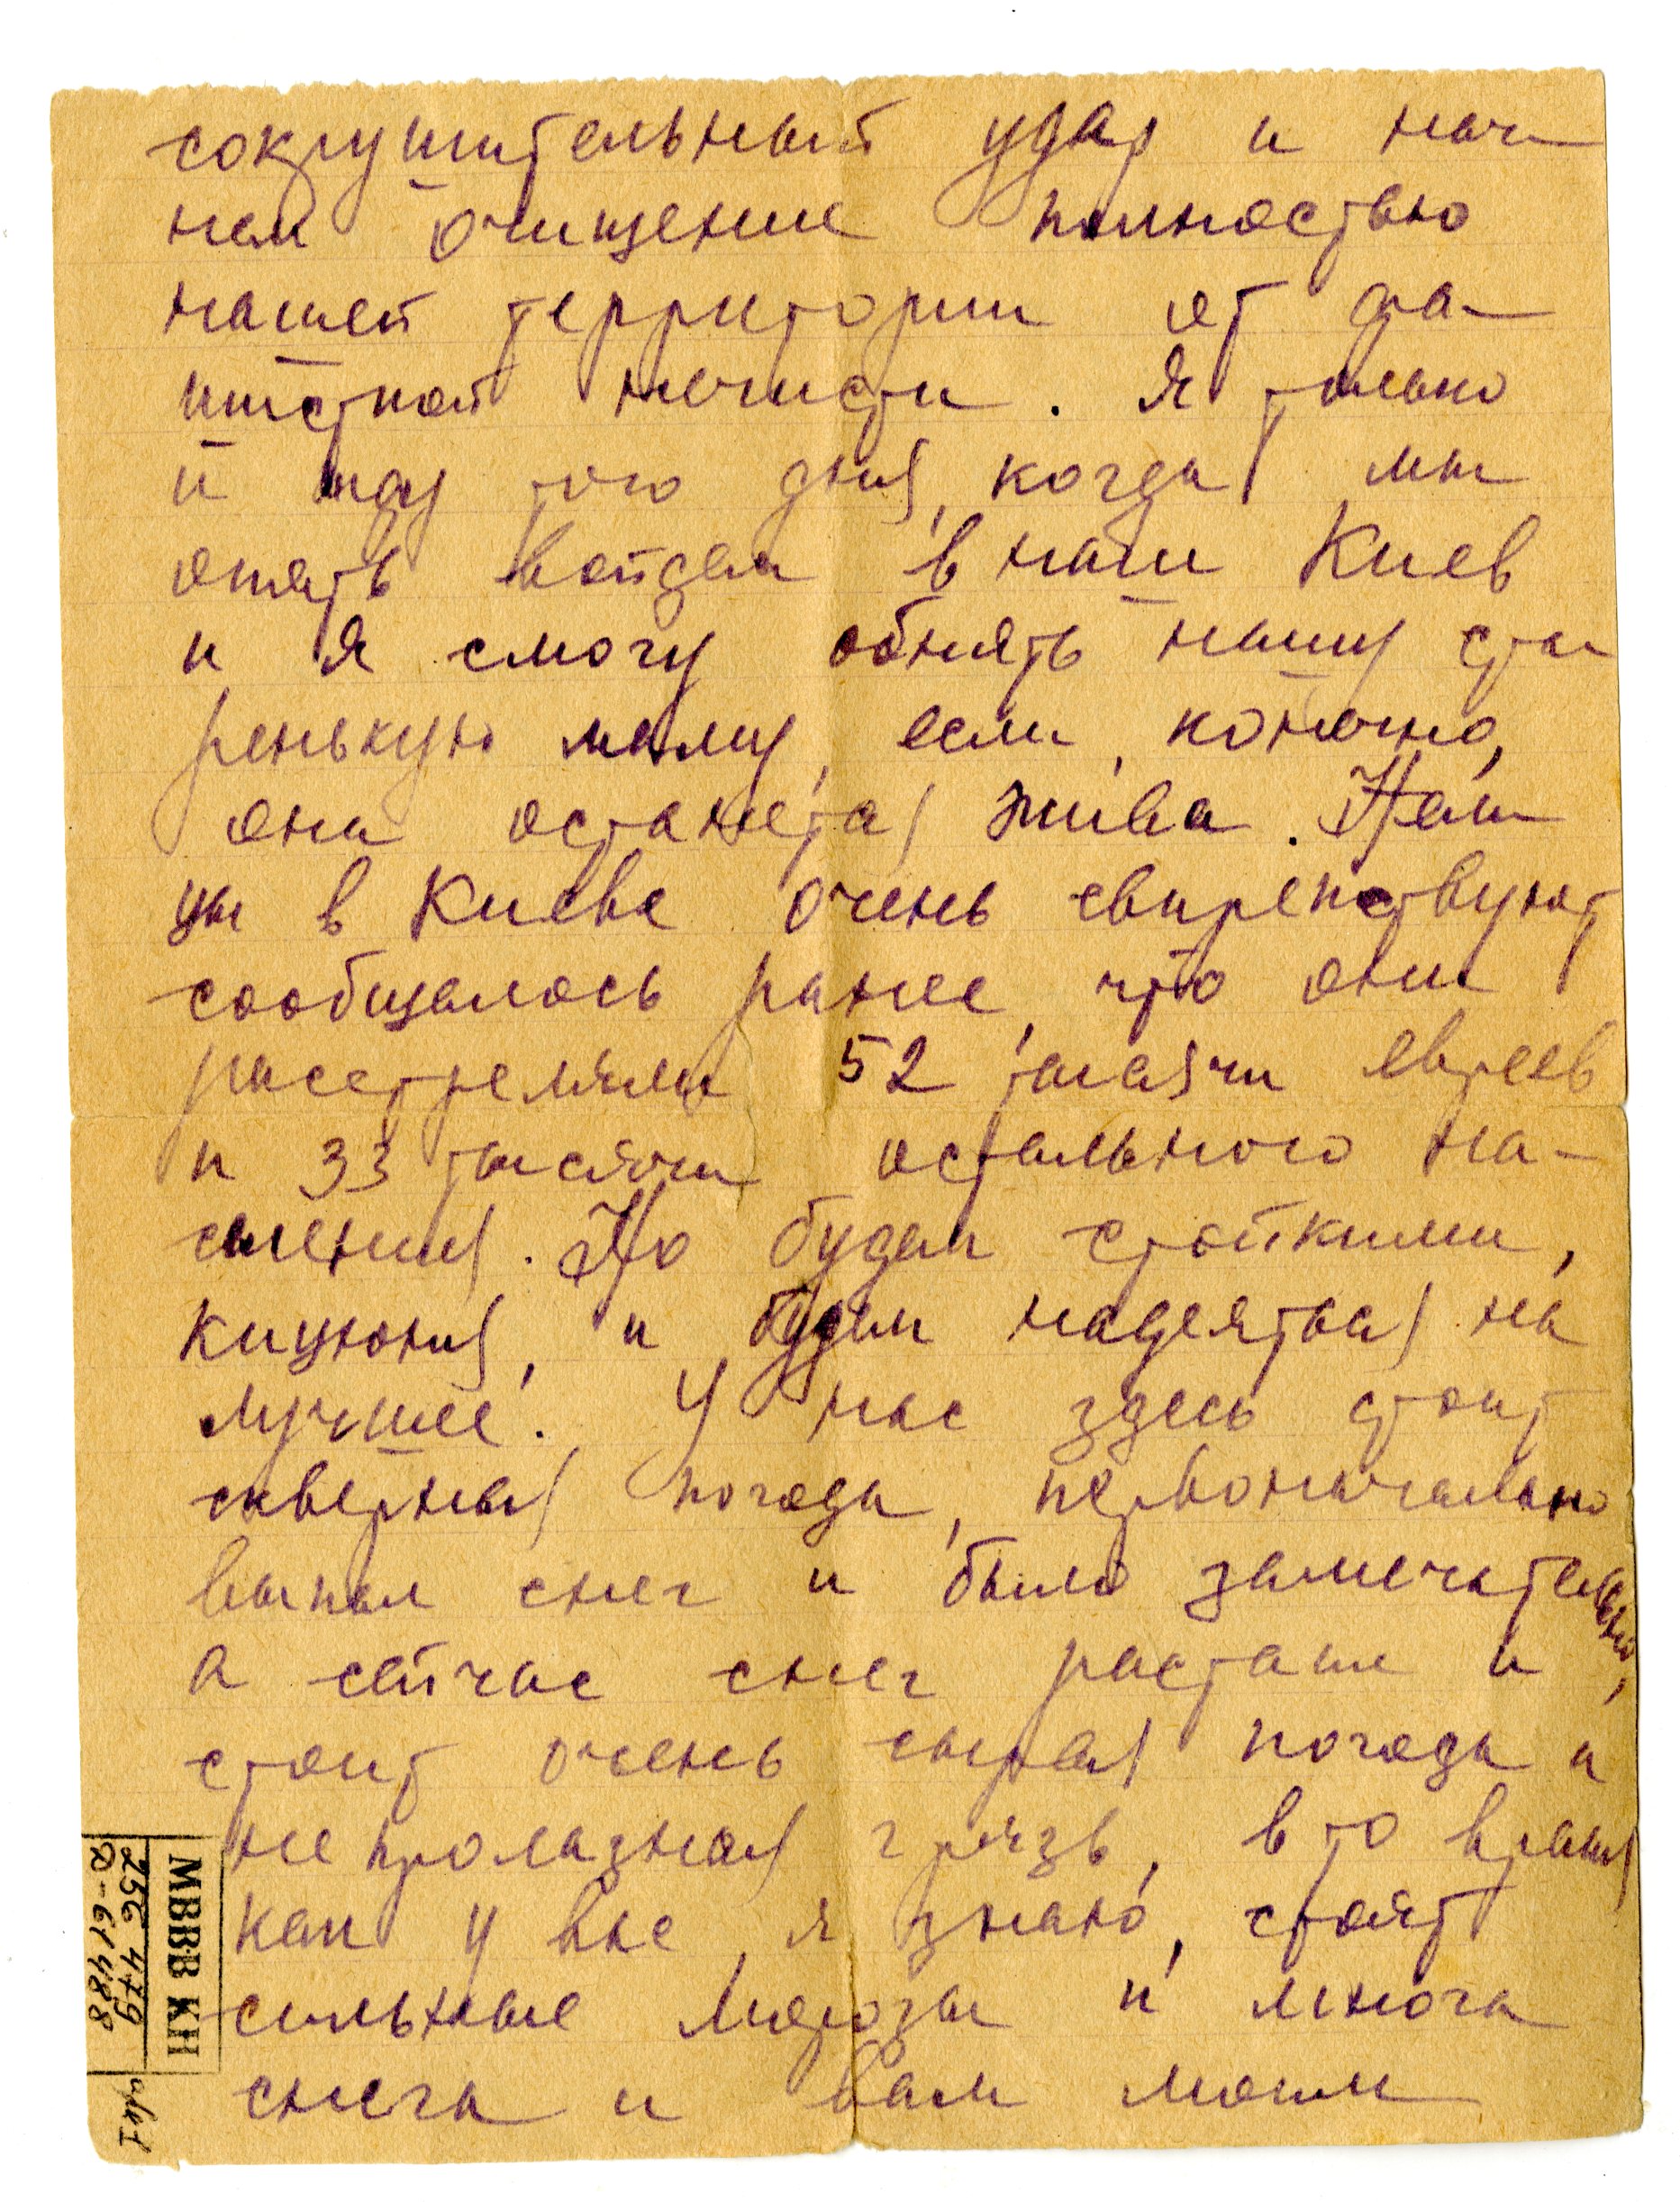 сокрушительный удар и нач
нем очищение полностью
нашей территории от фа-
шистской нечисти. Я только
и жду того дня, когда мы
опять войдем в наш Киев
и я смогу обнять нашу ста
ренькую маму, если, конечно,
она останется жива. Нем
цы в Киеве очень свирепствуют
сообщалось ранее, что они
расстреляли 52 тысячи евреев
и 33 тысячи остального на-
селения. Но будем стойкими,
и будем надеяться на
лучшее. У нас здесь стоит
скверная погода, первоначально
выпал снег и было замечательно,
а сейчас снег растаял и
стоит очень сырая погода и
не пролазная грязь, в то время
как у вас, я знаю, стоят
сильные морозы и много
снега и вам моим
МВВВ КН
256479